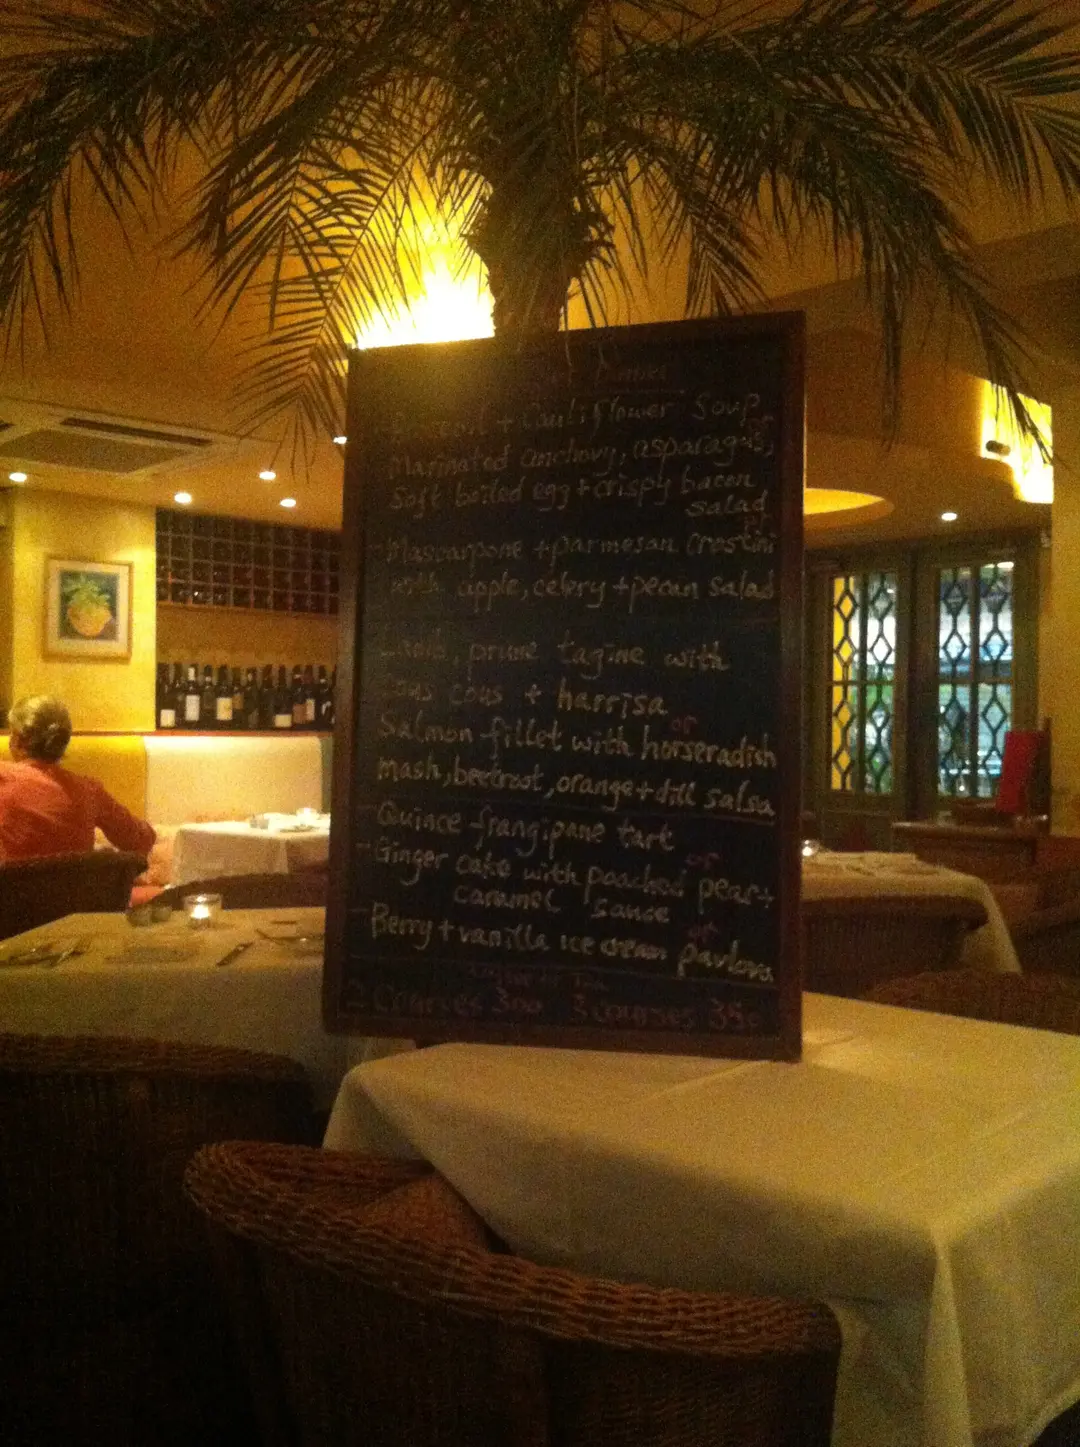 + Cauliflower Soup
or
Marinated anchovy, asparagus,
Soft boiled egg + crispy bacon
salad
or
- Mascarpone + parmesan crostini
with apple, celery + pecan salad
Lamb, prune tagine with
cous cous + harrisa
or
Salmon fillet with horseradish
mash, beetroot, orange + dill salsa
- Quince frangipane tart
or
- Ginger cake with poached pear +
caramel sauce
or
- Berry + vanilla ice cream pavlova
2 Courses 300 3 courses